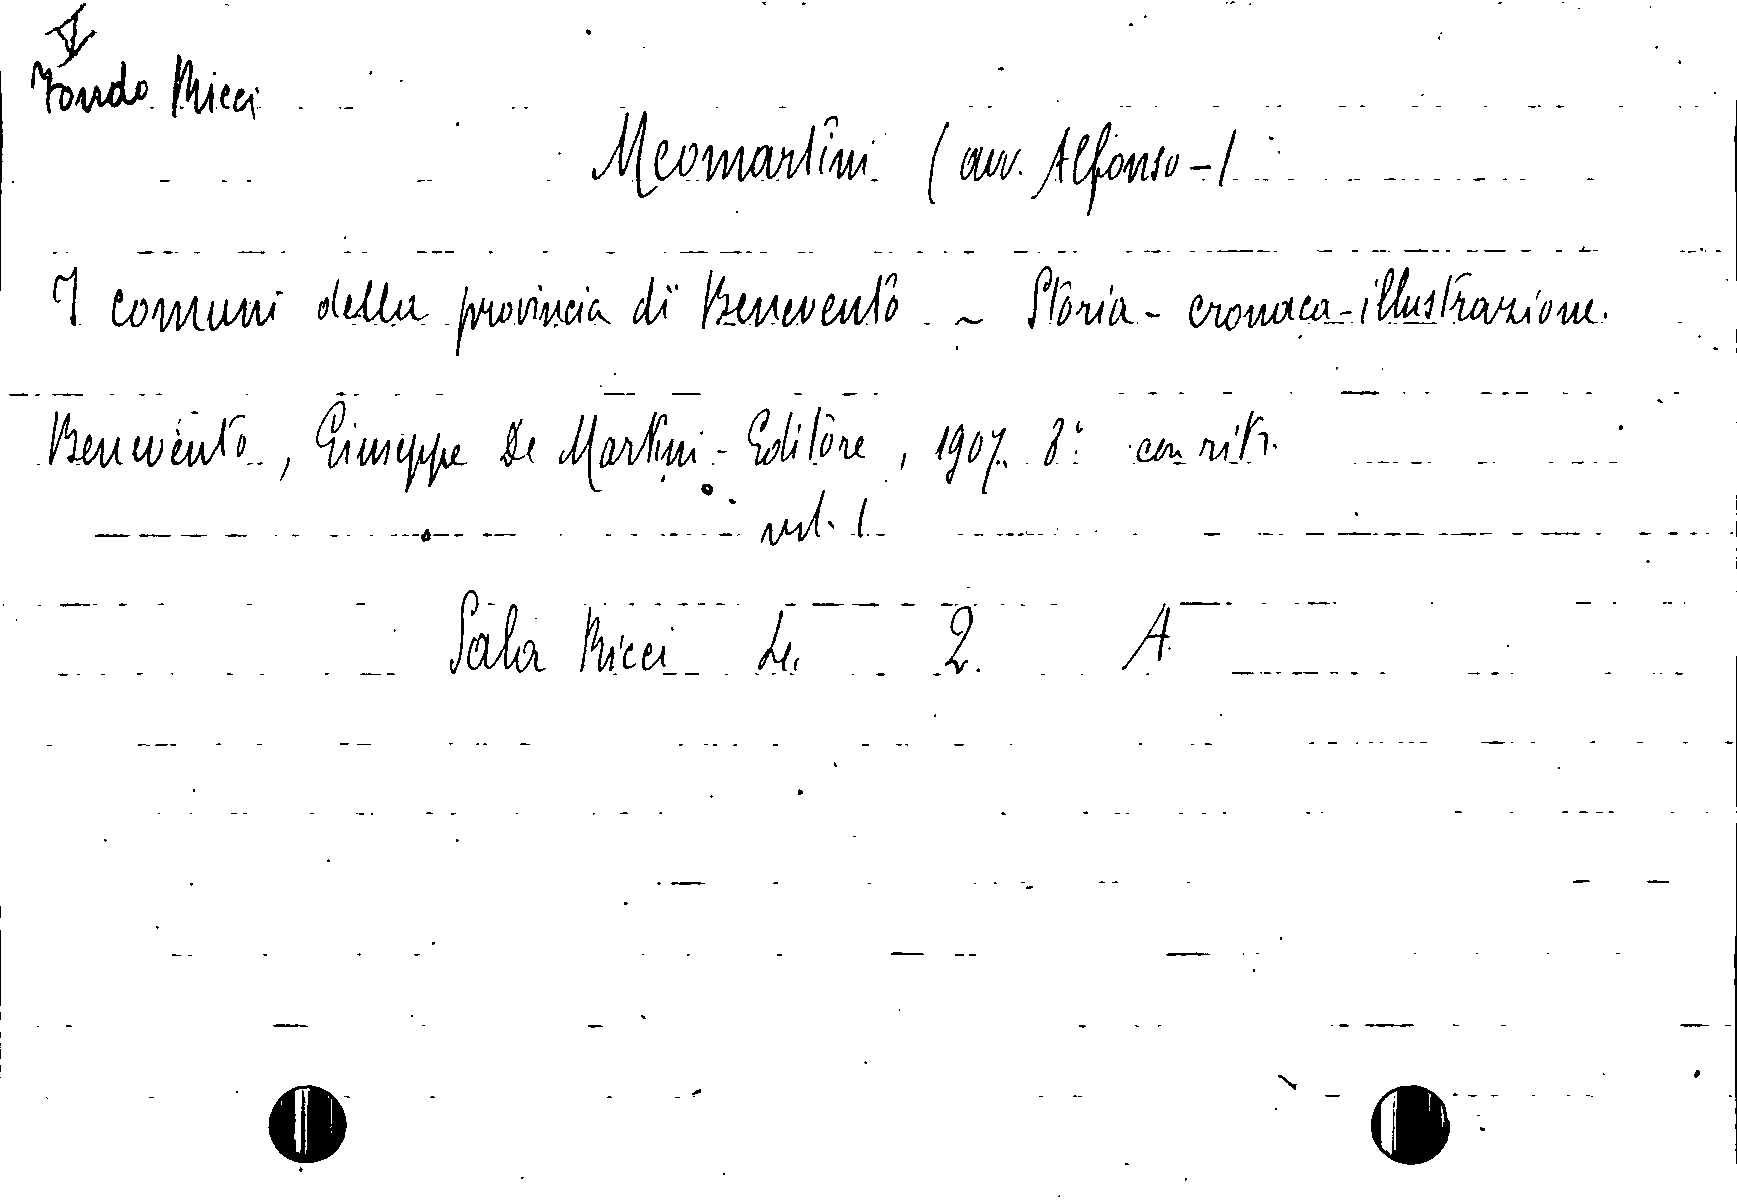 Fondo Ricci
Meomartini (avv. Alfonso-)
I comuni della provincia di Benevento - Storia - cronaca - illustrazione.
Benevento, Giuseppe De Martini - Editore, 1907. 8° con ritr.
vol. 1
Sala Ricci Le. 2. A